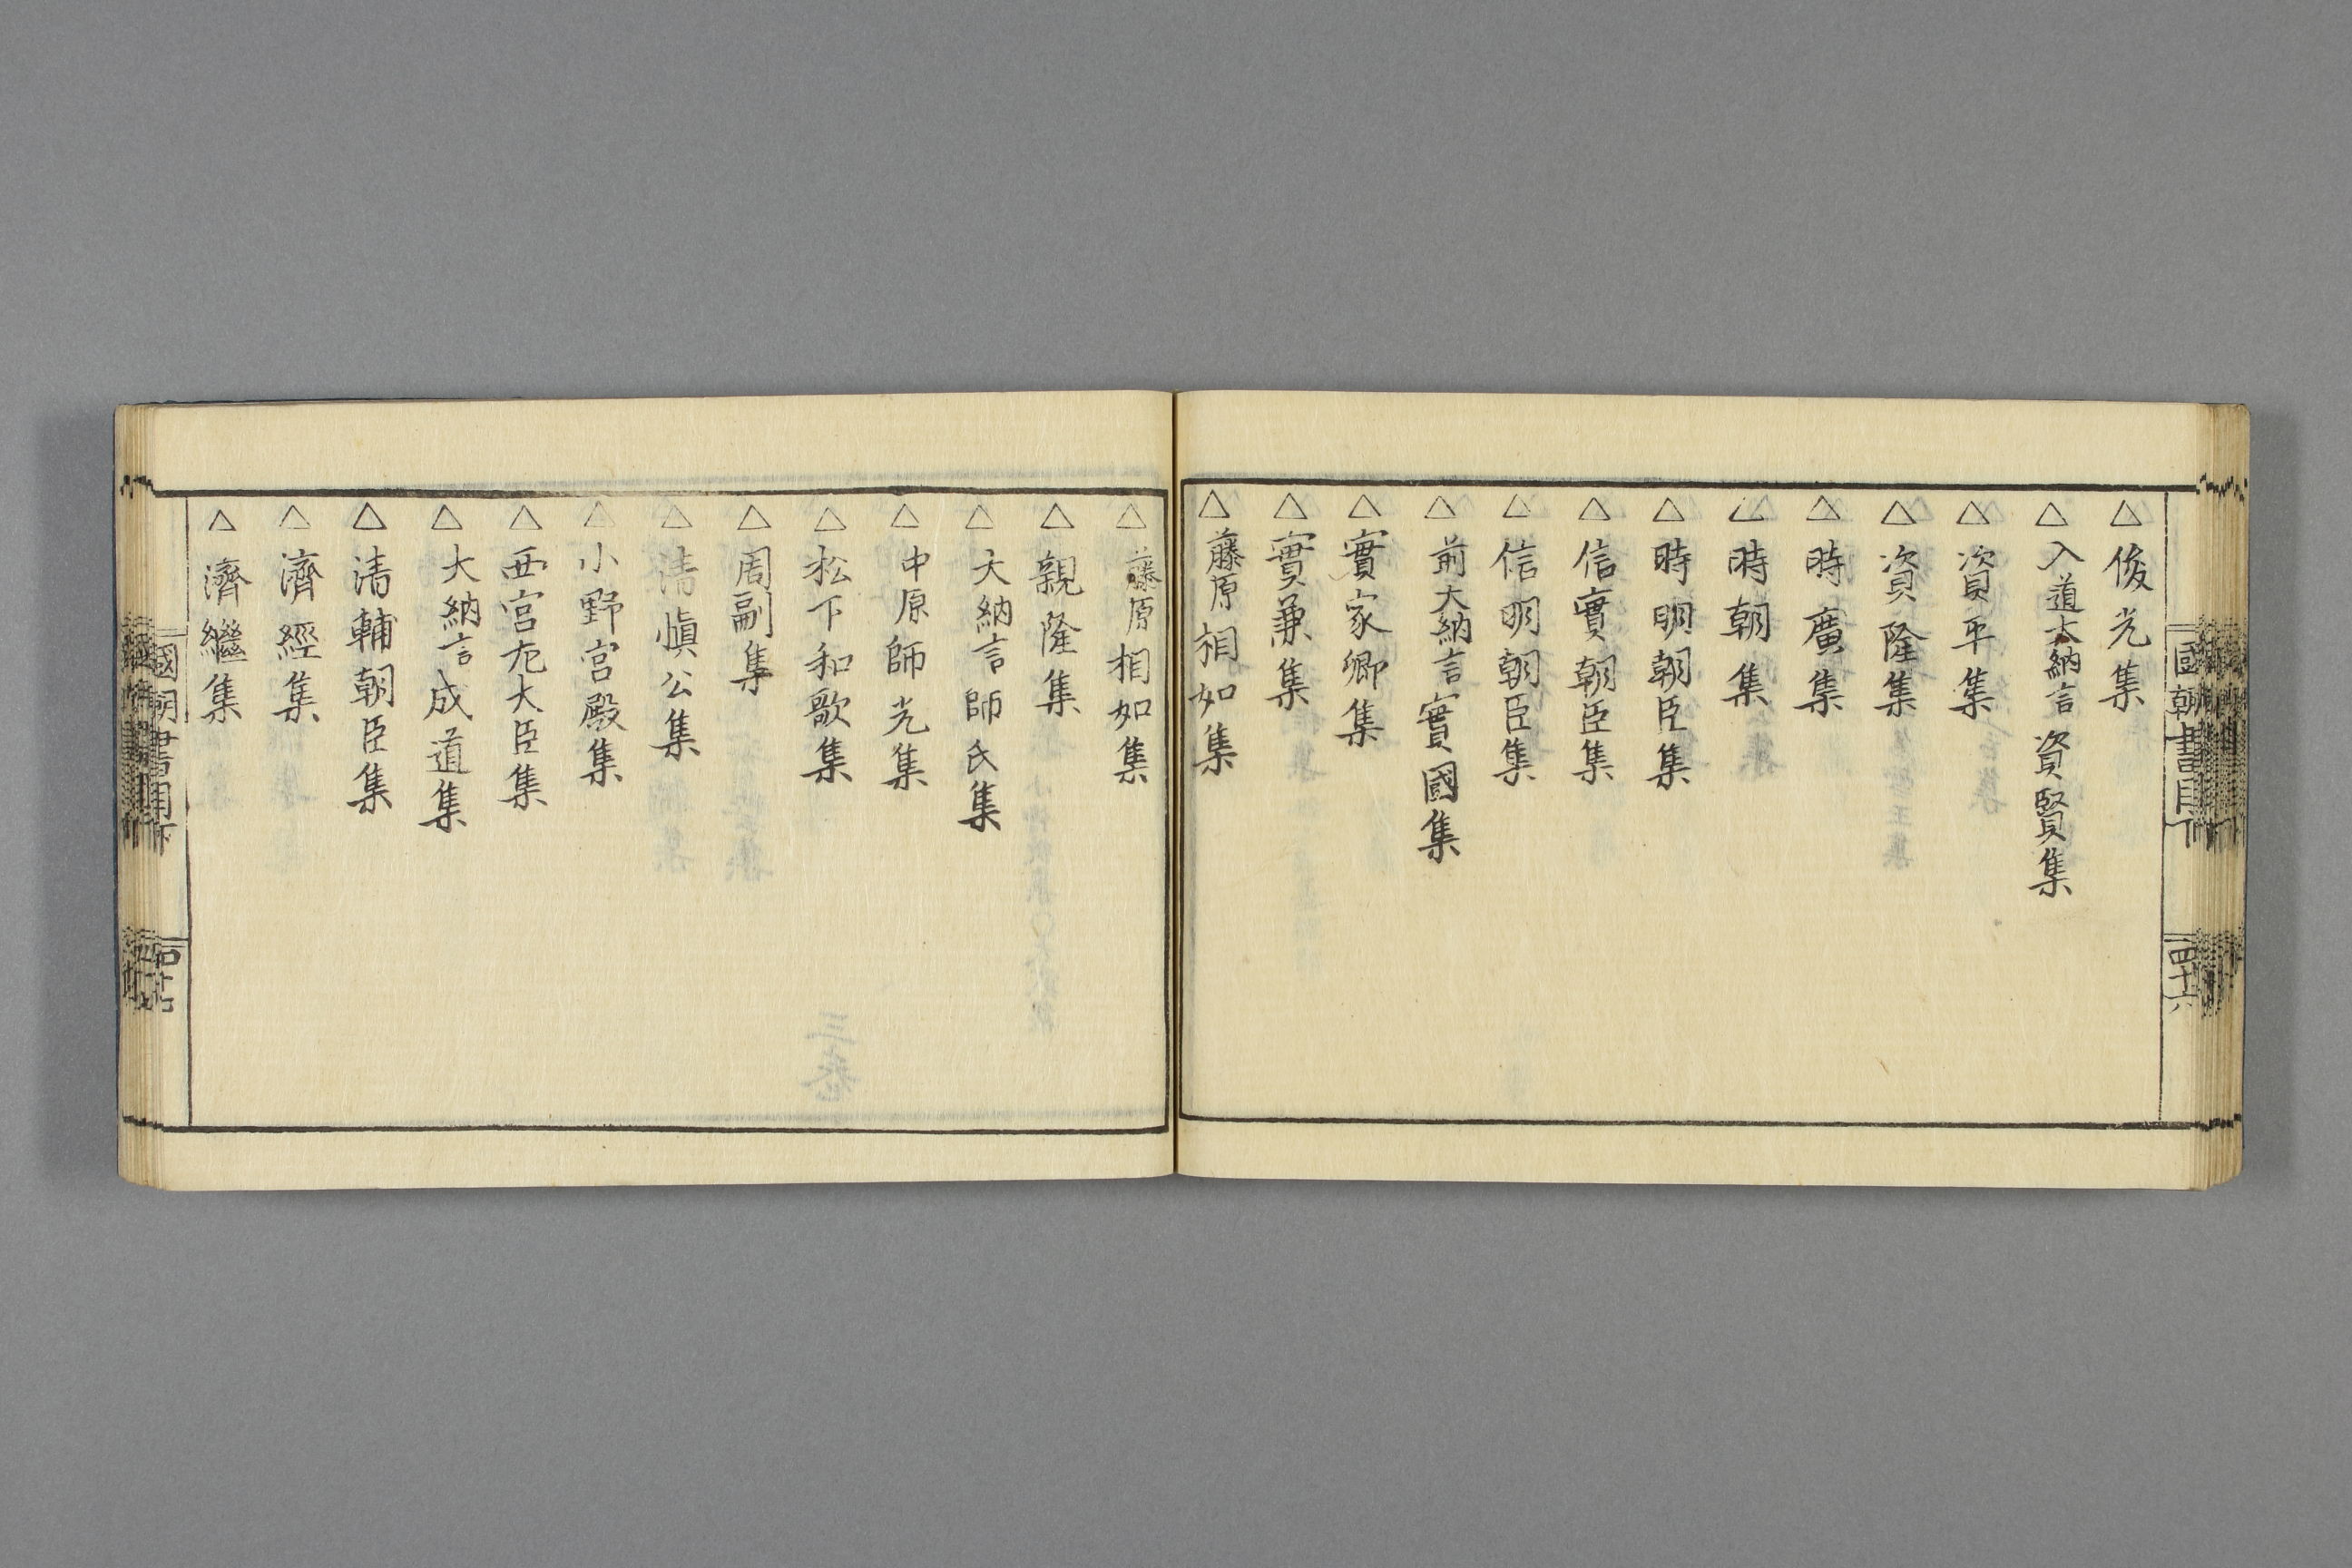 國朝書目下
四十六
△俊光集
△入道大納言資賢集
△資平集
△資隆集
△時廣集
△時朝集
△時明朝臣集
△信實朝臣集
△信明朝臣集
△前大納言實國集
△實家卿集
△實兼集
△藤原相如集
△藤原相如集
△親隆集
△大納言師氏集
△中原師光集
△松下和歌集
△周副集
△清愼公集
△小野宮殿集
△西宮左大臣集
△大納言成道集
△清輔朝臣集
△濟經集
△濟繼集
國朝書目下
四十七